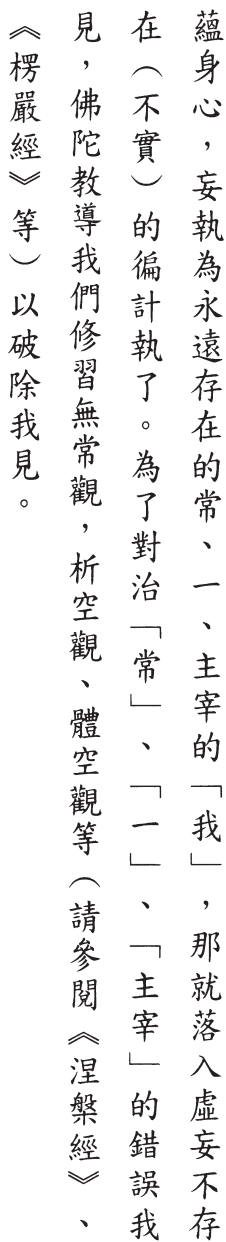 蘊身心，妄執為永遠存在的常、一、主宰的「我」，那就落入虛妄不存
在（不實）的徧計執了。為了對治「常」、「一」、「主宰」的錯誤我
見，佛陀教導我們修習無常觀，析空觀、體空觀等（請參閱《涅槃經》、
《楞嚴經》等）以破除我見。